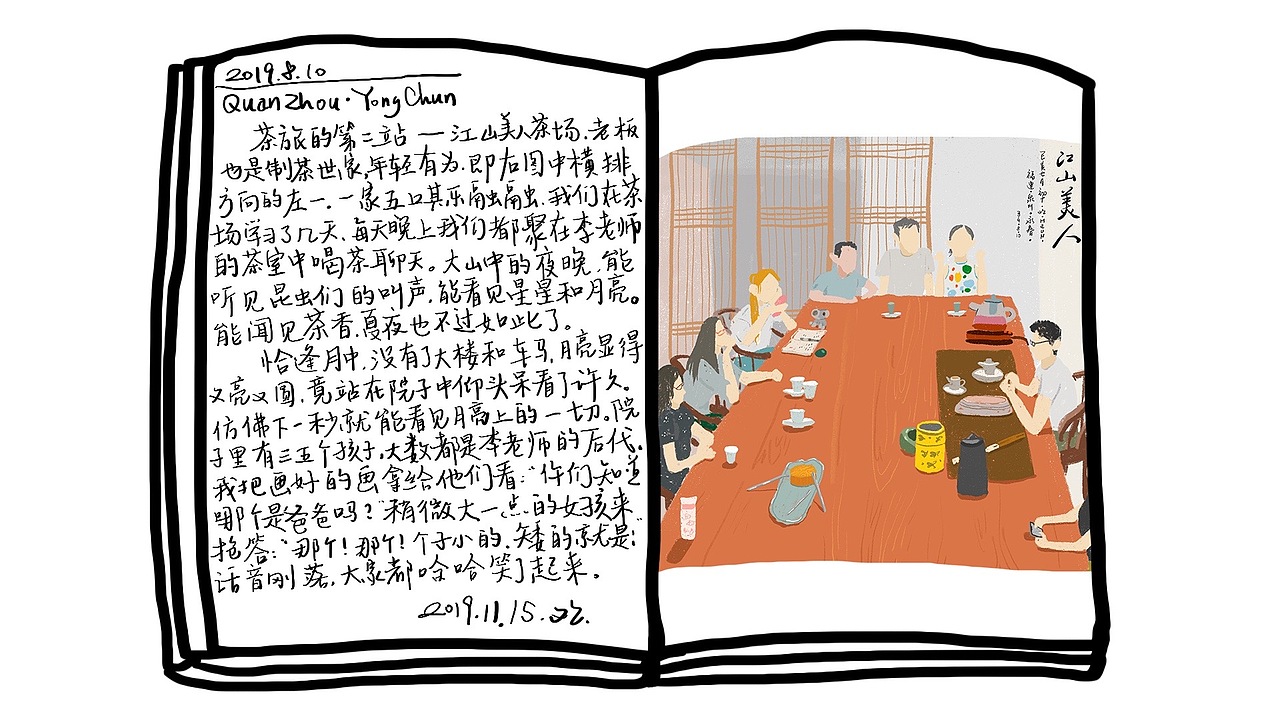 2019.8.10
QuanZhou·YongChun
茶旅的第二站—江山美人茶场.老板
也是制茶世家,年轻有为.即右图中横排
方向的左一.一家五口其乐融融.我们在茶
场学习了几天.每天晚上我们都聚在李老师
的茶室中喝茶聊天。大山中的夜晚.能
听见昆虫们的叫声.能看见星星和月亮。
能闻见茶香.夏夜也不过如此了。
恰逢月中,没有了大楼和车马,月亮显得
又亮又圆,竟站在院子中仰头呆看了许久。
仿佛下一秒就能看见月亮上的一切。院
子里有三五个孩子.大数都是李老师的后代.
我把画好的画拿给他们看:“你们知道
哪个是爸爸吗?”稍微大一点的女孩来
抢答:“那个!那个!个子小的.矮的就是!”
话音刚落,大家都哈哈笑了起来。
2019.11.15.
江山美人